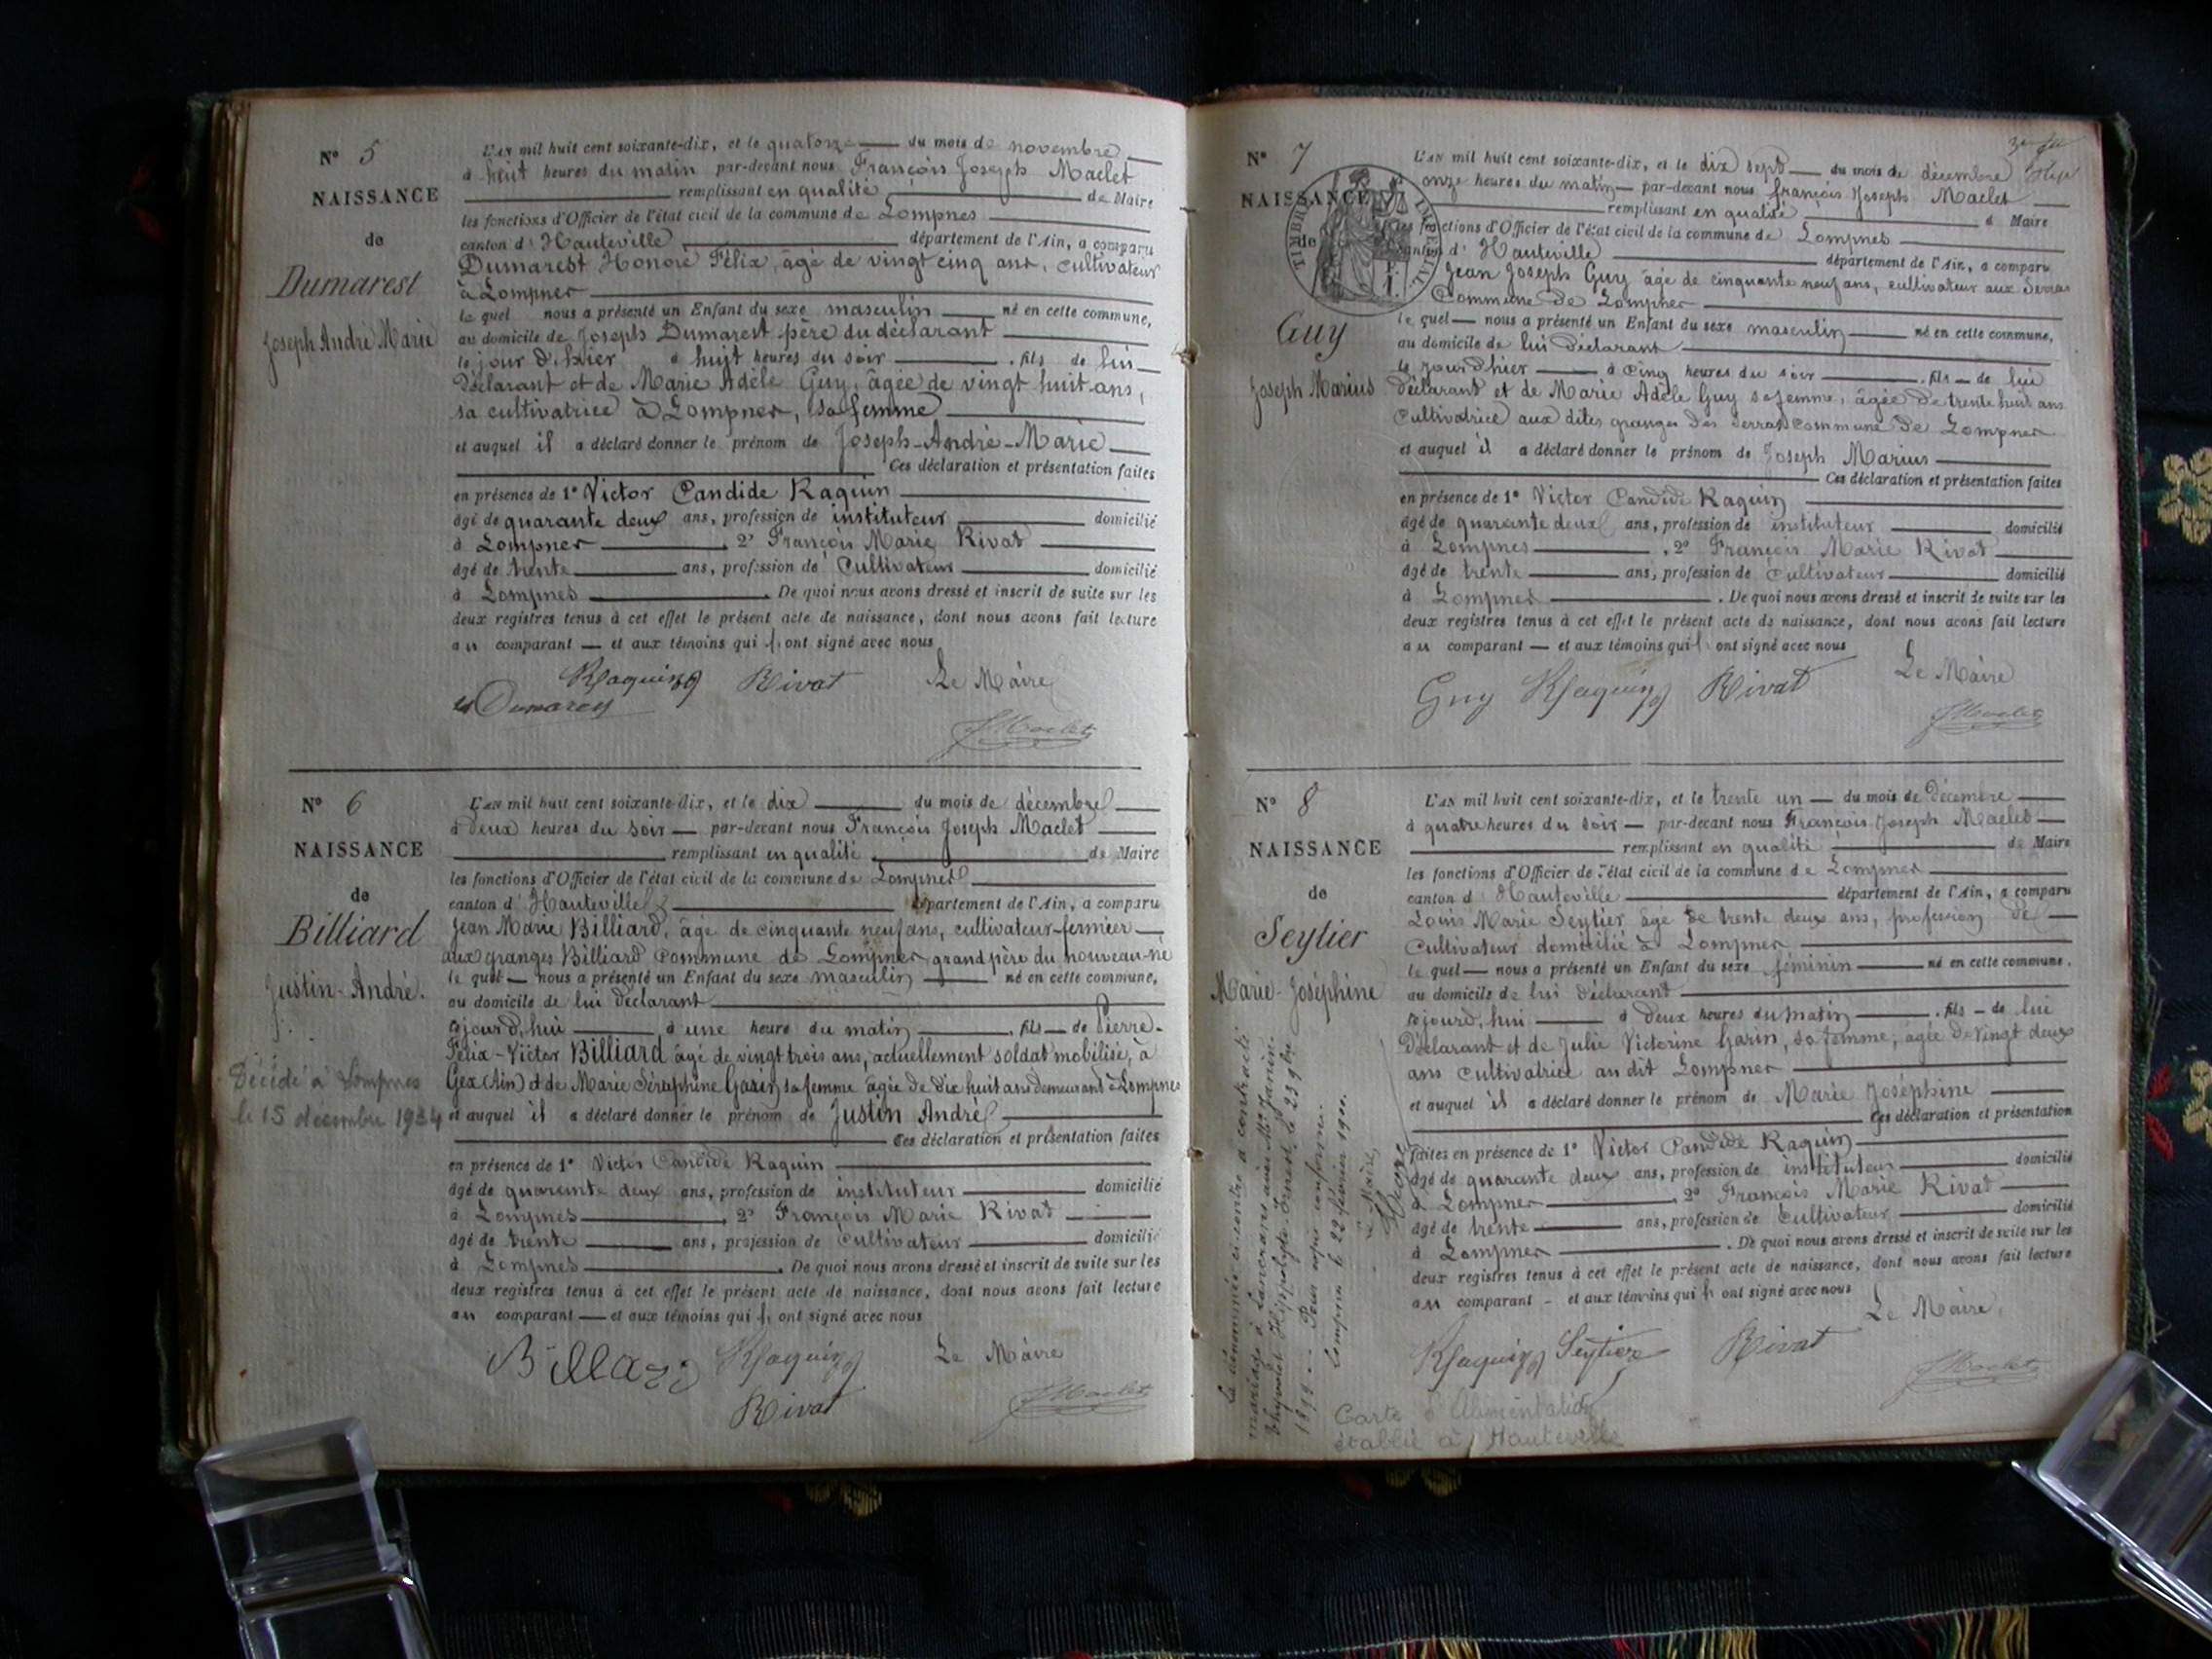 N° 5
NAISSANCE
de
Dumarest
Joseph André Marie
L'AN mil huit cent soixante-dix, et le quatorze du mois de novembre
à huit heures du matin par-devant nous François Joseph Maclet
remplissant en qualité de Maire
les fonctions d'Officier de l'état civil de la commune de Lompnes
canton d' Hauteville département de l'Ain, a comparu
Dumarest Honoré Félix, âgé de vingt cinq ans, cultivateur
à Lompnes
le quel nous a présenté un Enfant du sexe masculin né en cette commune,
au domicile de Joseph Dumarest père du déclarant
le jour d'hier à huit heures du soir , fils de lui
déclarant et de Marie Adèle Guy, âgée de vingt huit ans,
sa cultivatrice à Lompnes, sa femme
et auquel il a déclaré donner le prénom de Joseph-André-Marie
Ces déclaration et présentation faites
en présence de 1° Victor Candide Raquin
âgé de quarante deux ans, profession de instituteur domicilié
à Lompnes , 2° François Marie Rivat
âgé de trente ans, profession de Cultivateur domicilié
à Lompnes . De quoi nous avons dressé et inscrit de suite sur les
deux registres tenus à cet effet le présent acte de naissance, dont nous avons fait lecture
au comparant — et aux témoins qui ont signé avec nous
Raquin Rivat Le Maire
Dumarest
Maclet
N° 6
NAISSANCE
de
Billiard
Justin-André.
Décédé à Lompnes
le 15 décembre 1934
L'AN mil huit cent soixante-dix, et le dix du mois de décembre
à deux heures du soir — par-devant nous François Joseph Maclet
remplissant en qualité de Maire
les fonctions d'Officier de l'état civil de la commune de Lompnes
canton d' Hauteville département de l'Ain, a comparu
Jean Marie Billiard, âgé de cinquante neuf ans, cultivateur-fermier
aux granges Billiard Commune de Lompnes grand père du nouveau-né
le quel — nous a présenté un Enfant du sexe masculin né en cette commune,
au domicile de lui déclarant
cejourd'hui à une heure du matin , fils — de Pierre-
Félix-Victor Billiard âgé de vingt trois ans, actuellement soldat mobilisé, à
Gex (Ain) et de Marie Séraphine Garin sa femme âgée de dix huit ans demeurant à Lompnes
et auquel il a déclaré donner le prénom de Justin André
Ces déclaration et présentation faites
en présence de 1° Victor Candide Raquin
âgé de quarante deux ans, profession de instituteur domicilié
à Lompnes , 2° François Marie Rivat
âgé de trente ans, profession de Cultivateur domicilié
à Lompnes . De quoi nous avons dressé et inscrit de suite sur les
deux registres tenus à cet effet le présent acte de naissance, dont nous avons fait lecture
au comparant — et aux témoins qui ont signé avec nous
Billard Raquin Le Maire
Rivat Maclet
N° 7
NAISSANCE
de
TIMBRE IMPERIAL
Guy
Joseph Marius
L'AN mil huit cent soixante-dix, et le dix sept du mois de décembre
onze heures du matin — par-devant nous François Joseph Maclet
remplissant en qualité Maire
les fonctions d'Officier de l'état civil de la commune de Lompnes
canton d' Hauteville département de l'Ain, a comparu
Jean Joseph Guy âgé de cinquante neuf ans, cultivateur aux Serras
Commune de Lompnes
le quel — nous a présenté un Enfant du sexe masculin né en cette commune,
au domicile de lui déclarant
le jour d'hier à cinq heures du soir , fils — de lui
déclarant et de Marie Adèle Guy sa femme, âgée de trente huit ans
Cultivatrice aux dites granges des Serras commune de Lompnes
et auquel il a déclaré donner le prénom de Joseph Marius
Ces déclaration et présentation faites
en présence de 1° Victor Candide Raquin
âgé de quarante deux ans, profession de instituteur domicilié
à Lompnes , 2° François Marie Rivat
âgé de trente ans, profession de Cultivateur domicilié
à Lompnes . De quoi nous avons dressé et inscrit de suite sur les
deux registres tenus à cet effet le présent acte de naissance, dont nous avons fait lecture
au comparant — et aux témoins qui ont signé avec nous
Guy Raquin Rivat Le Maire
Maclet
N° 8
NAISSANCE
de
Seytier
Marie-Joséphine
La dénommée ci-contre a contracté
mariage à Lancrans avec Mr Janin
Hippolyte Ernest le 23 9bre
1899. Pour copie conforme.
Lompnes le 22 février 1900.
Le Maire,
L'AN mil huit cent soixante-dix, et le trente un — du mois de Décembre
à quatre heures du soir — par-devant nous François Joseph Maclet
remplissant en qualité de Maire
les fonctions d'Officier de l'état civil de la commune de Lompnes
canton d' Hauteville département de l'Ain, a comparu
Louis Marie Seytier âgé de trente deux ans, profession de
Cultivateur domicilié à Lompnes
le quel — nous a présenté un Enfant du sexe féminin né en cette commune,
au domicile de lui déclarant
cejourd'hui à deux heures du matin , fils — de lui
déclarant et de Julie Victorine Garin, sa femme, âgée de vingt deux
ans cultivatrice au dit Lompnes
et auquel il a déclaré donner le prénom de Marie Joséphine
Ces déclaration et présentation
faites en présence de 1° Victor Candide Raquin
âgé de quarante deux ans, profession de instituteur domicilié
à Lompnes , 2° François Marie Rivat
âgé de trente ans, profession de Cultivateur domicilié
à Lompnes . De quoi nous avons dressé et inscrit de suite sur les
deux registres tenus à cet effet le présent acte de naissance, dont nous avons fait lecture
au comparant - et aux témoins qui ont signé avec nous
Raquin Seytier Rivat Le Maire
Maclet
Carte d'Alimentation
établie à Hauteville